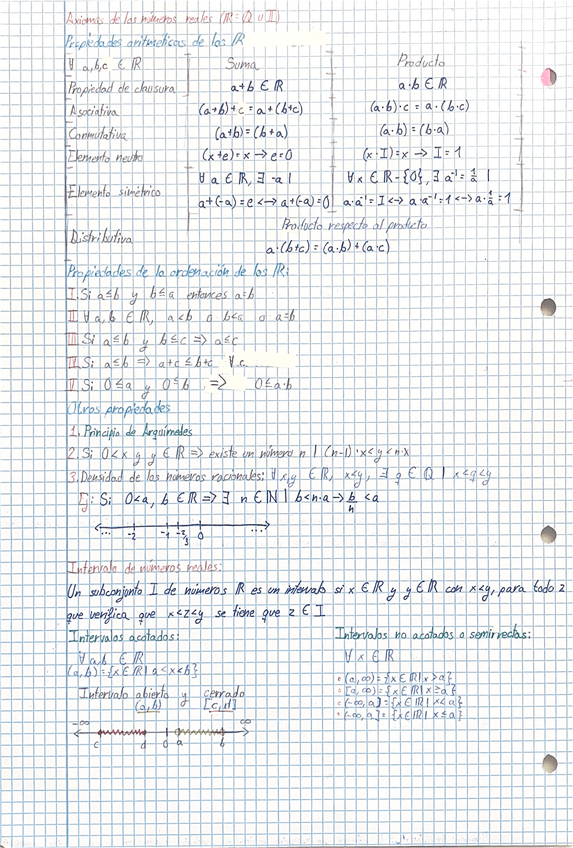 Axiomas de los números reales (ℝ = ℚ ∪ 𝕀)
Propiedades aritméticas de los ℝ
∀ a,b,c ∈ ℝ Suma Producto
Propiedad de clausura a+b ∈ ℝ a·b ∈ ℝ
Asociativa (a+b)+c = a+(b+c) (a·b)·c = a·(b·c)
Conmutativa (a+b) = (b+a) (a·b) = (b·a)
Elemento neutro (x+e)=x → e=0 (x·I)=x → I=1
∀ a ∈ ℝ, ∃ -a | ∀ x ∈ ℝ-{0}, ∃ a⁻¹ = 1/a |
Elemento simétrico a+(-a)=e <-> a+(-a)=0 a·a⁻¹=I <-> a·a⁻¹=1 <-> a·1/a=1
Producto respecto al producto
Distributiva a·(b+c) = (a·b)+(a·c)
Propiedades de la ordenación de los ℝ:
I. Si a≤b y b≤a entonces a=b
II. ∀ a,b ∈ ℝ, a<b o b<a o a=b
III. Si a≤b y b≤c => a≤c
IV. Si a≤b => a+c ≤ b+c ∀ c
V. Si 0≤a y 0≤b => 0≤a·b
Otras propiedades
1. Principio de Arquímedes
2. Si 0<x y y ∈ ℝ => existe un número n | (n-1)·x<y<n·x
3. Densidad de los números racionales: ∀ x,y ∈ ℝ, x<y, ∃ q ∈ ℚ | x<q<y
Ej: Si 0<a, b ∈ ℝ => ∃ n ∈ ℕ | b<n·a → b/n <a
... -2 -1 -2/3 0 ...
Intervalo de números reales:
Un subconjunto I de números ℝ es un intervalo si x ∈ ℝ y y ∈ ℝ con x<y, para todo z
que verifica que x<z<y se tiene que z ∈ I
Intervalos acotados: Intervalos no acotados o semirrectas:
∀ a,b ∈ ℝ ∀ x ∈ ℝ
(a,b)={x∈ℝ | a<x<b} • (a,∞)={x∈ℝ | x>a}
• [a,∞)={x∈ℝ | x≥a}
Intervalo abierto y cerrado • (-∞,a]={x∈ℝ | x<a}
(a,b) [c,d] • (-∞,a]={x∈ℝ | x≤a}
-∞ ∞
c d 0 a b